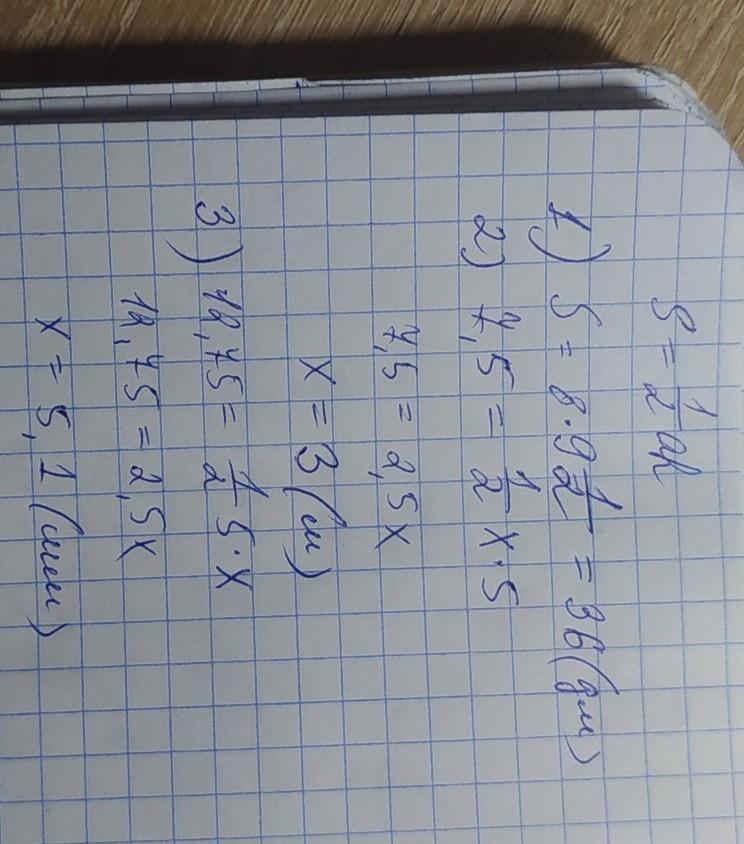 S = 1/2 ah
1) S = 8·9 1/2 = 36 (дм)
2) 7,5 = 1/2 x·5
7,5 = 2,5x
x = 3 (см)
3) 12,75 = 1/2 5·x
12,75 = 2,5x
x = 5,1 (мм)